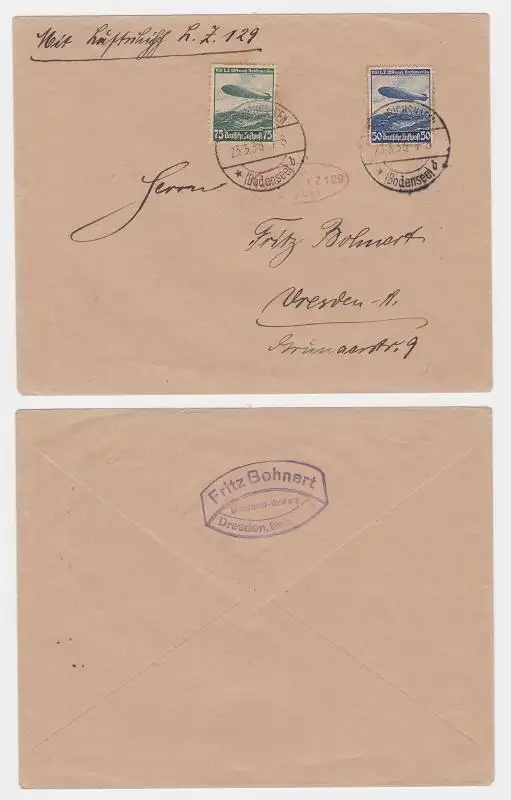 Mit Luftschiff L. Z. 129
Mit LZ 129 nach Nordamerika
75 Deutsche Luftpost 75
Mit LZ 129 nach Nordamerika
50 Deutsche Luftpost 50
23.5.36
(Bodensee) b
(Bodensee) b
LZ 129
Herrn
Fritz Bohnert
Dresden-A.
Grunaerstr. 9
Fritz Bohnert
Dresden,